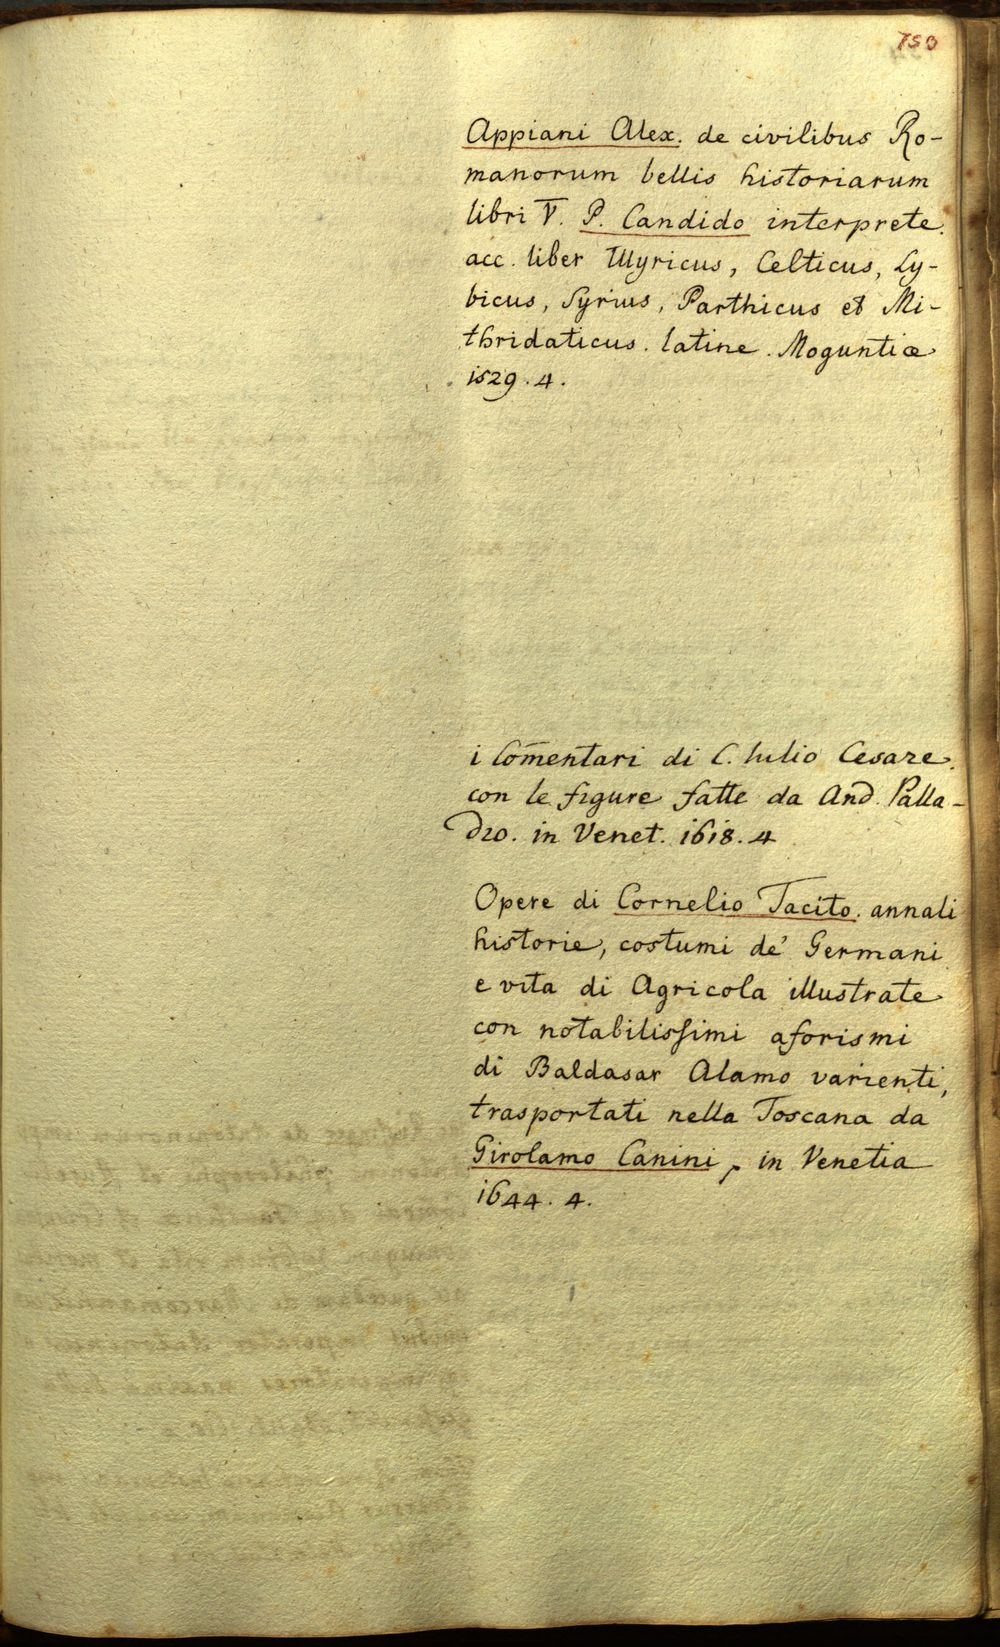 753
Appiani Alex. de civilibus Ro-
manorum bellis historiarum
libri V. P. Candido interprete.
acc. liber Illyricus, Celticus, Ly-
bicus, Syrius, Parthicus et Mi-
thridaticus. latine. Moguntiæ
1529. 4.
i Com̄entari di C. Iulio Cesare.
con le figure fatte da And. Palla-
dio. in Venet. 1618. 4
Opere di Cornelio Tacito. annali
historie, costumi de' Germani
e vita di Agricola illustrate
con notabilissimi aforismi
di Baldasar Alamo varienti,
trasportati nella Toscana da
Girolamo Canini, in Venetia
1644. 4.